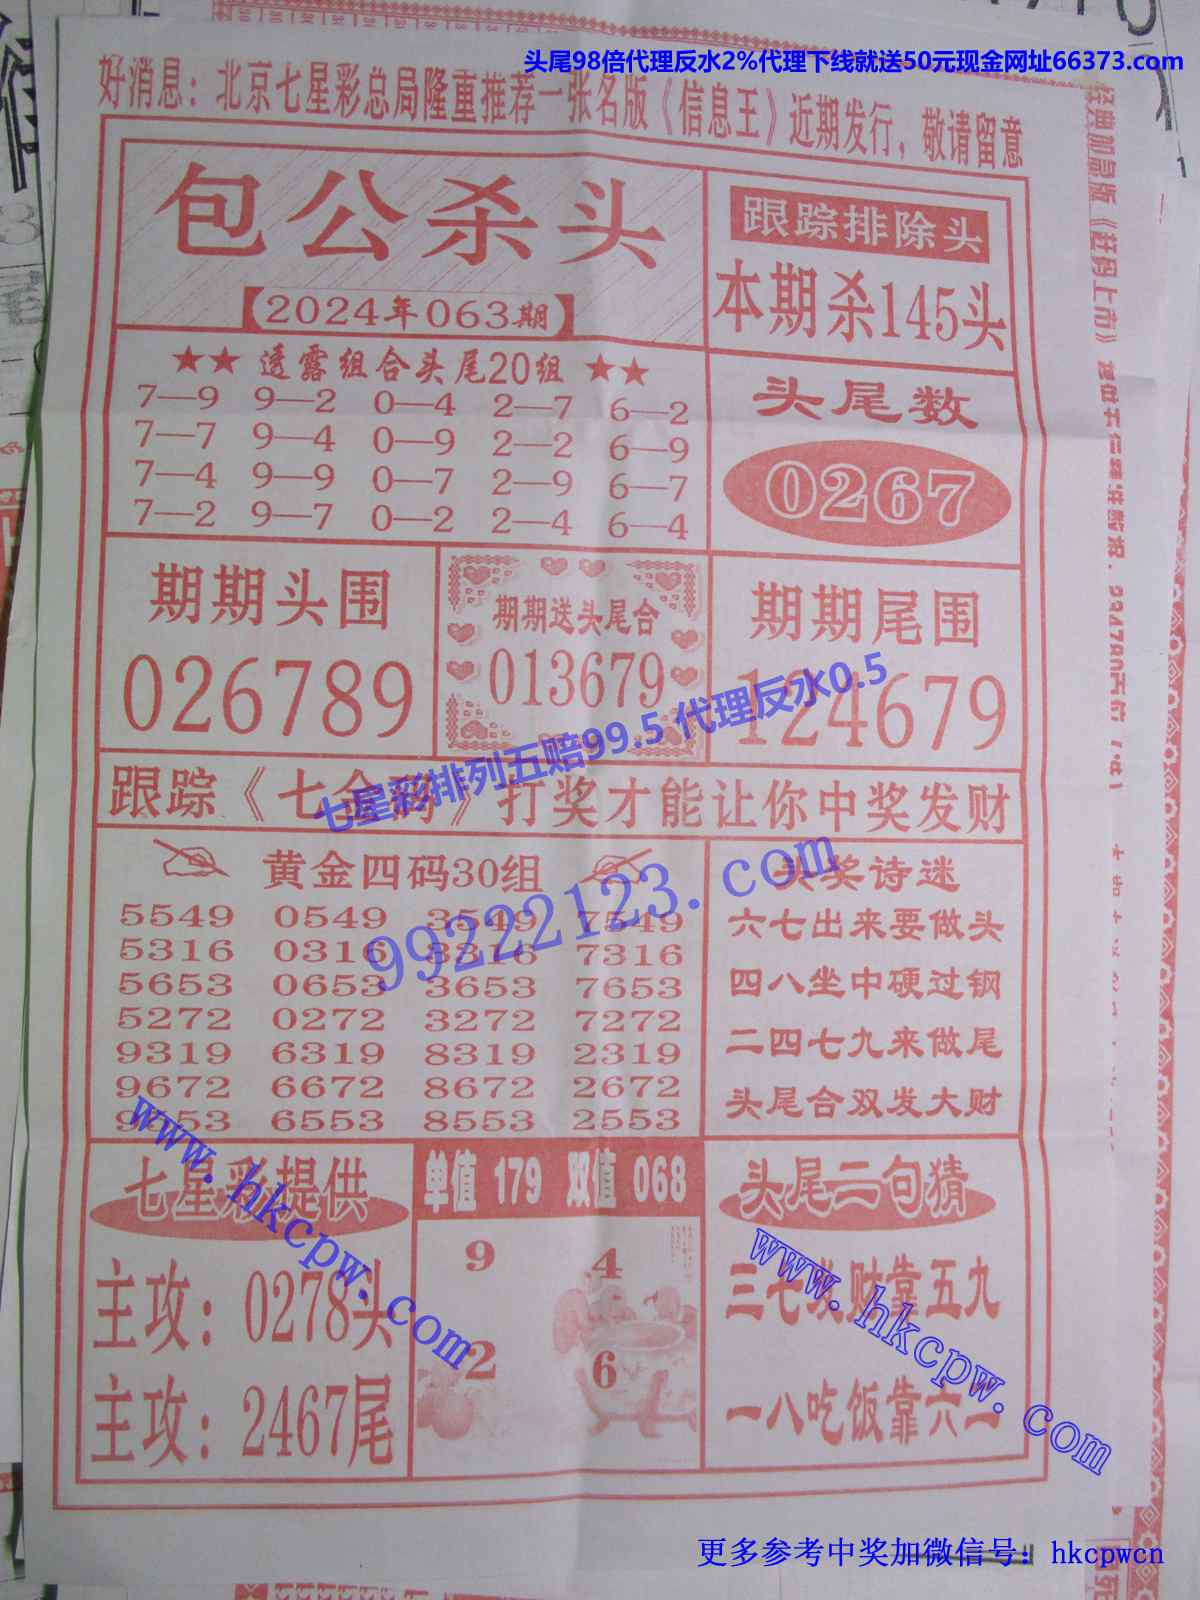 头尾98倍代理反水2%代理下线就送50元现金网址66373.com
好消息：北京七星彩总局隆重推荐一张名版《信息王》近期发行，敬请留意
包公杀头
【2024年063期】
跟踪排除头
本期杀145头
★★ 透露组合头尾20组 ★★
7—9 9—2 0—4 2—7 6—2
7—7 9—4 0—9 2—2 6—9
7—4 9—9 0—7 2—9 6—7
7—2 9—7 0—2 2—4 6—4
头尾数
0267
期期头围
026789
期期送头尾合
013679
期期尾围
124679
七星彩排列五赔99.5 代理反水0.5
跟踪《七
》打奖才能让你中奖发财
99222123.com
黄金四码30组
5549 0549 3549 7549
5316 0316 3316 7316
5653 0653 3653 7653
5272 0272 3272 7272
9319 6319 8319 2319
9672 6672 8672 2672
9553 6553 8553 2553
头奖诗迷
六七出来要做头
四八坐中硬过钢
二四七九来做尾
头尾合双发大财
www.hkcpw.com
七星彩提供
主攻：0278头
主攻：2467尾
单值 179 双值 068
9 4
2 6
头尾二句猜
三七发财靠五九
一八吃饭靠六二
www.hkcpw.com
更多参考中奖加微信号：hkcpwcn